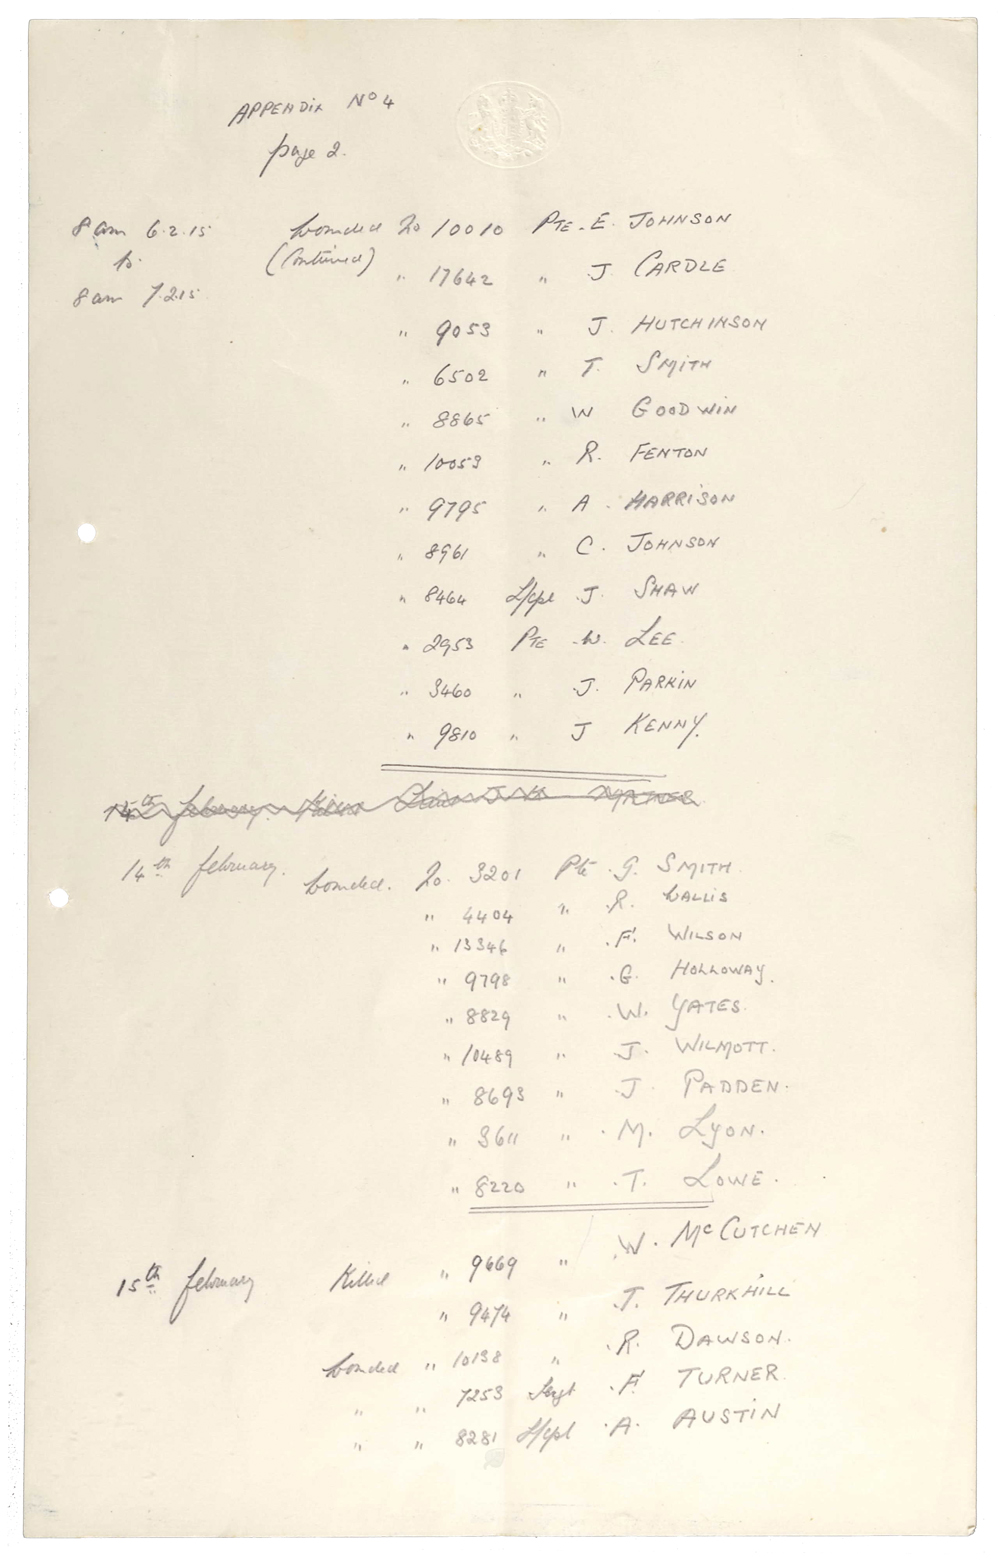 APPENDIX No 4
page 2.
8 am 6.2.15 wounded No 10010 Pte. E. JOHNSON
to (Continued) " 17642 " J CARDLE
8 am 7.2.15
" 9053 " J. HUTCHINSON
" 6502 " T. SMITH
" 8865 " W GOODWIN
" 10053 " R. FENTON
" 9795 " A. HARRISON
" 8961 " C. JOHNSON
" 8464 L/cpl J. SHAW
" 2953 PTE W. LEE
" 3460 " J. PARKIN
" 9810 " J KENNY.
14th february. Killed
14th february. wounded. No. 3201 Pte G. SMITH
" 4404 " R. WALLIS
" 13346 " F. WILSON
" 9798 " G. HOLLOWAY.
" 8829 " W. YATES.
" 10489 " J. WILMOTT.
" 8693 " J. PADDEN.
" 3611 " M. LYON.
" 8220 " T. LOWE.
15th february Killed " 9669 " W. McCUTCHEN
" 9474 " T. THURKHILL
wounded " 10138 " R. DAWSON.
" " 7253 Sergt F. TURNER
" " 8281 L/cpl A. AUSTIN